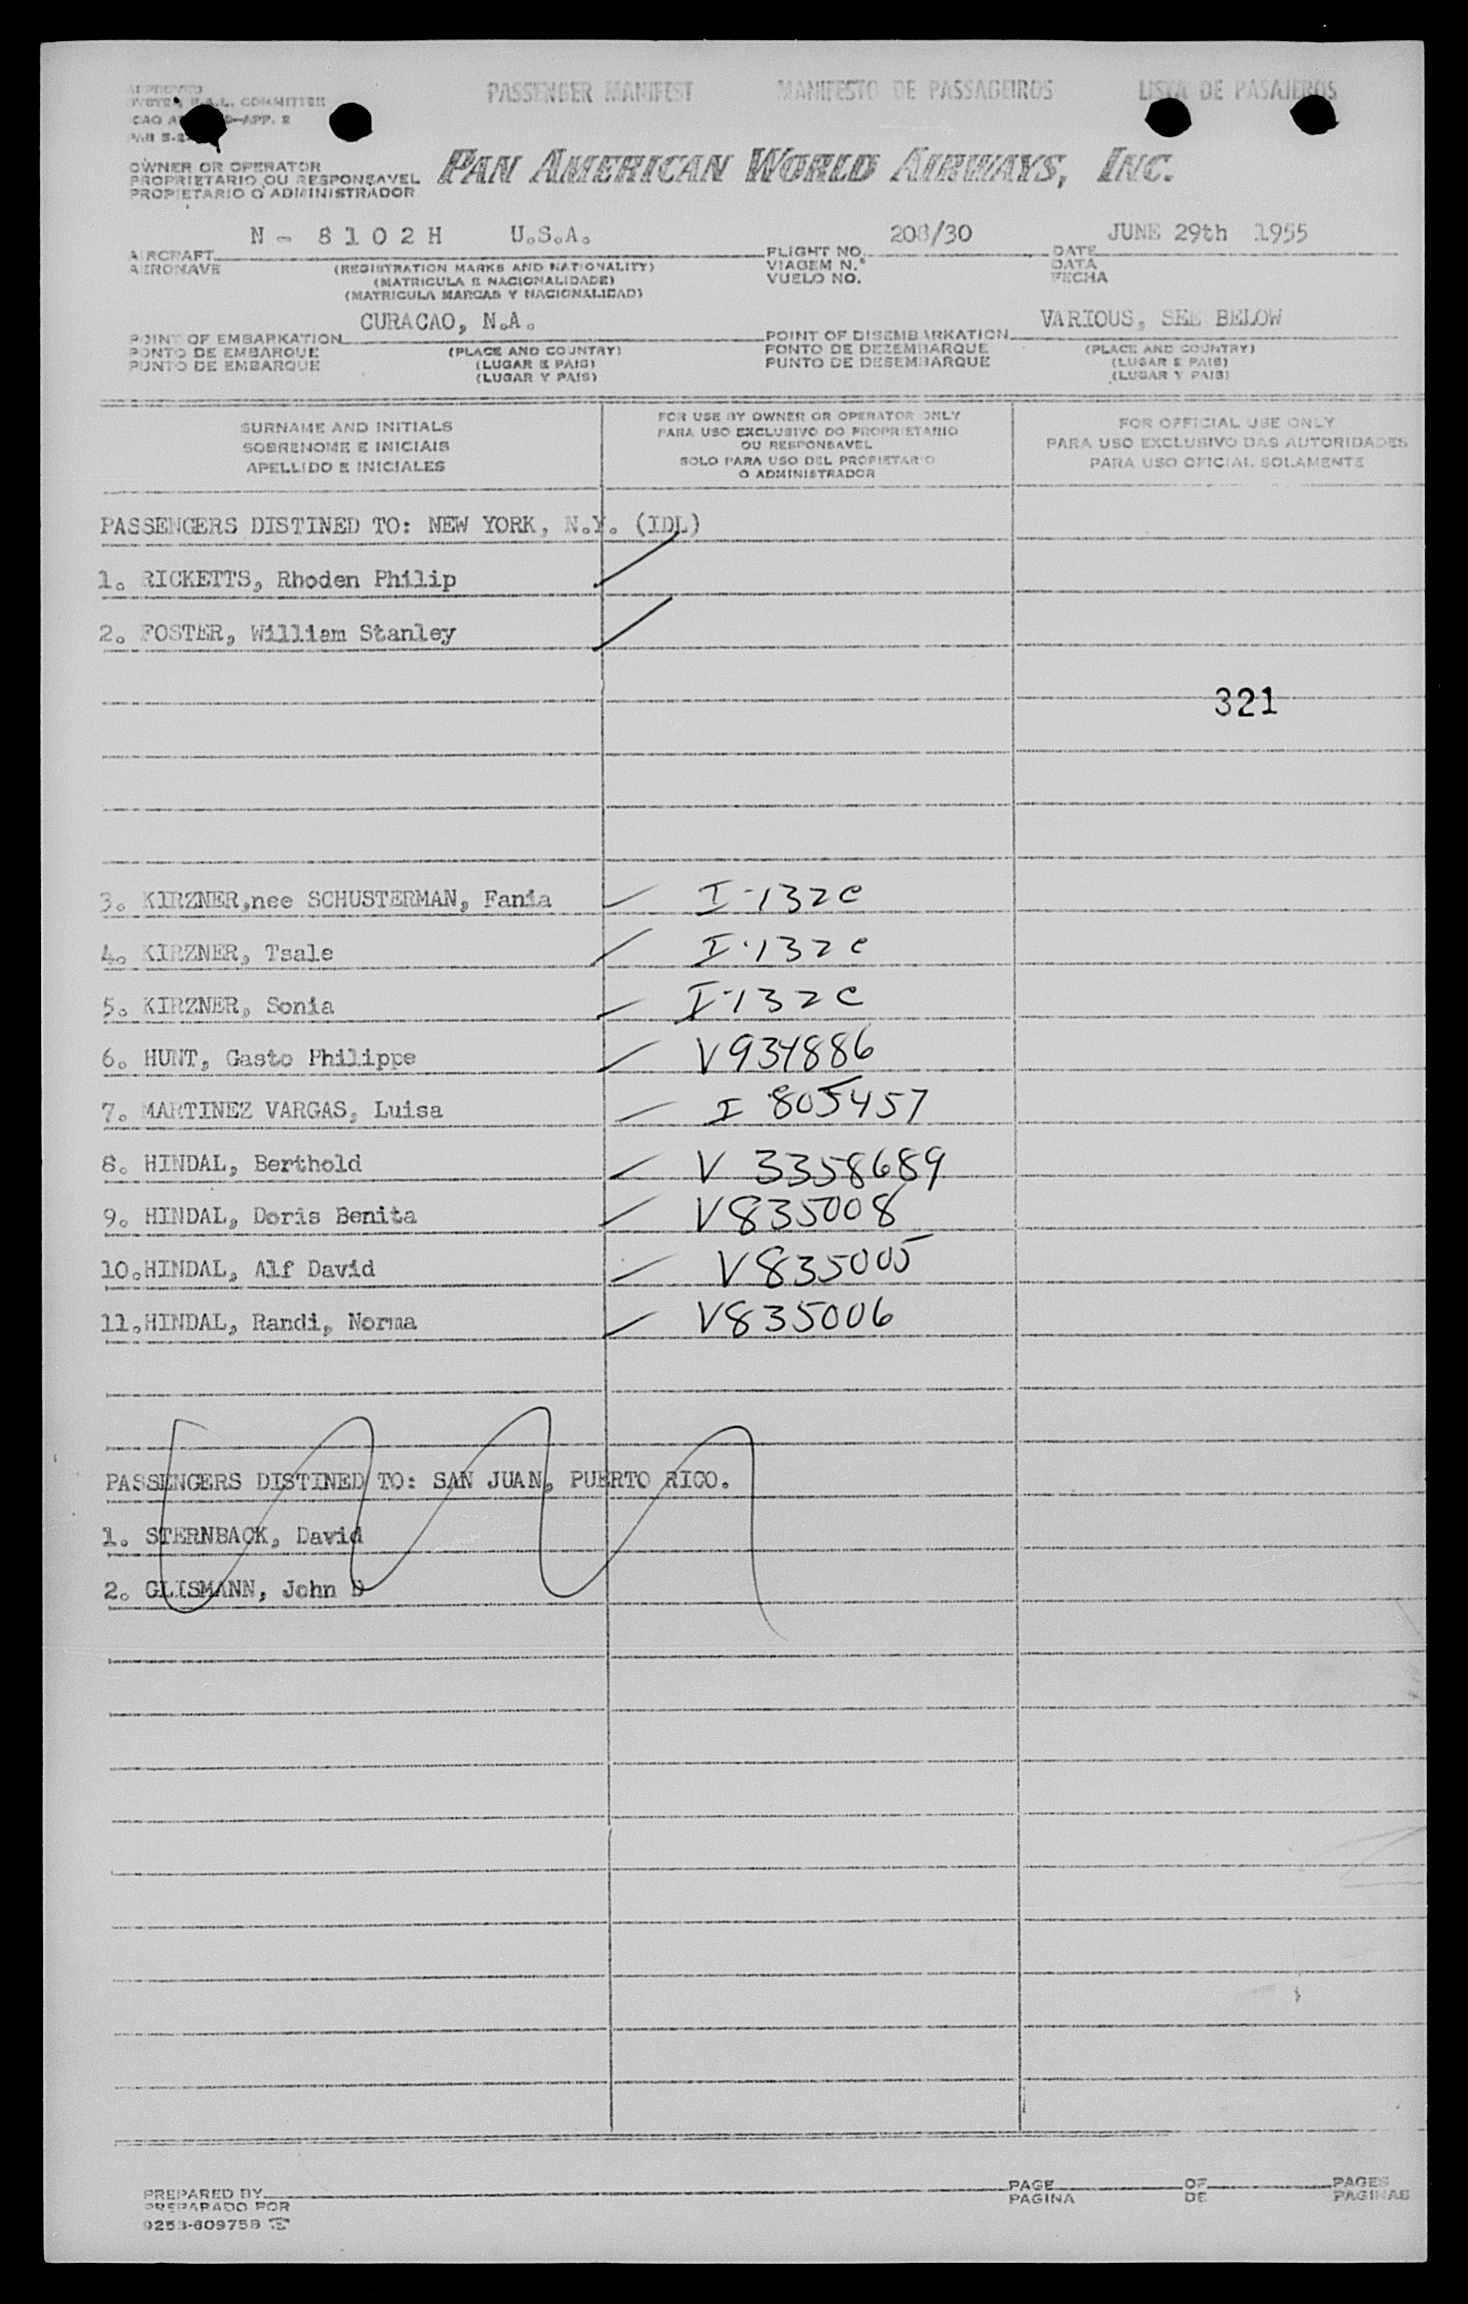 PASSENGER MANIFEST MANIFESTO DE PASSAGEIROS LISTA DE PASAJEROS
APPROVED
COMMITTEE
OWNER OR OPERATOR
PROPRIETARIO OU RESPONSAVEL
PROPIETARIO O ADMINISTRADOR
PAN AMERICAN WORLD AIRWAYS, INC.
N - 8102H U.S.A. 208/30 JUNE 29th 1955
AIRCRAFT FLIGHT NO. DATE
AERONAVE (REGISTRATION MARKS AND NATIONALITY) VIAGEM N.º DATA
(MATRICULA E NACIONALIDADE) VUELO NO. FECHA
(MATRICULA MARCAS Y NACIONALIDAD)
CURACAO, N.A. VARIOUS, SEE BELOW
POINT OF EMBARKATION POINT OF DISEMBARKATION
PONTO DE EMBARQUE (PLACE AND COUNTRY) PONTO DE DEZEMBARQUE (PLACE AND COUNTRY)
PUNTO DE EMBARQUE (LUGAR E PAIS) PUNTO DE DESEMBARQUE (LUGAR E PAIS)
(LUGAR Y PAIS) (LUGAR Y PAIS)
SURNAME AND INITIALS
SOBRENOME E INICIAIS
APELLIDO E INICIALES
FOR USE BY OWNER OR OPERATOR ONLY
PARA USO EXCLUSIVO DO PROPRIETARIO
OU RESPONSAVEL
SOLO PARA USO DEL PROPIETARIO
O ADMINISTRADOR
FOR OFFICIAL USE ONLY
PARA USO EXCLUSIVO DAS AUTORIDADES
PARA USO OFICIAL SOLAMENTE
PASSENGERS DISTINED TO: NEW YORK, N.Y. (IDL)
1. RICKETTS, Rhoden Philip
2. FOSTER, William Stanley
321
3. KIRZNER,nee SCHUSTERMAN, Fania I-132c
4. KIRZNER, Tsale I-132c
5. KIRZNER, Sonia I-132c
6. HUNT, Gasto Philippe V934886
7. MARTINEZ VARGAS, Luisa I 805457
8. HINDAL, Berthold V 3358689
9. HINDAL, Doris Benita V835008
10.HINDAL, Alf David V835005
11.HINDAL, Randi, Norma V835006
PASSENGERS DISTINED TO: SAN JUAN, PUERTO RICO.
1. STERNBACK, David
2. GLISMANN, John D
PREPARED BY PAGE OF PAGES
PREPARADO POR PAGINA DE PAGINAS
9253-609758